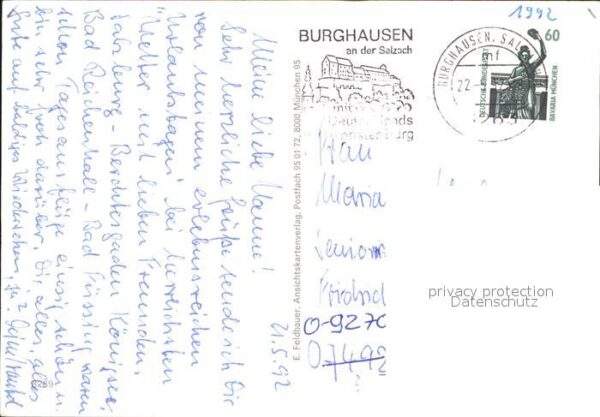 1992
BURGHAUSEN
an der Salzach
Deutschlands
BURGHAUSEN, SAL
22
DEUTSCHE BUNDESPOST
60
BAVARIA MÜNCHEN
E. Feldbauer, Ansichtskartenverlag, Postfach 95 01 72, 8000 München 95
21.5.92
Meine liebe Mama!
Sehr herzliche Grüße sende ich Dir
von meinen erlebnisreichen
"Urlaubstagen" bei herrlichstem
Wetter mit lieben Freunden.
Salzburg - Berchtesgaden Königsee,
Bad Reichenhall - Bad Füssing waren
schon Tagesausflüge einzig schön u.
bin sehr froh darüber. Dir alles, alles
Gute auf baldiges Wiedersehen,
Frau
Maria
Senioren
O-927
O-7492
privacy protection
Datenschutz